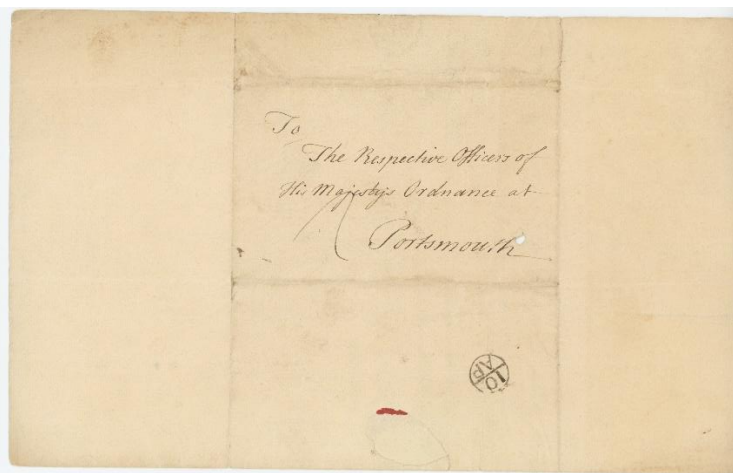 To
The Respective Officers of
His Majesty's Ordnance at
Portsmouth
10
AP